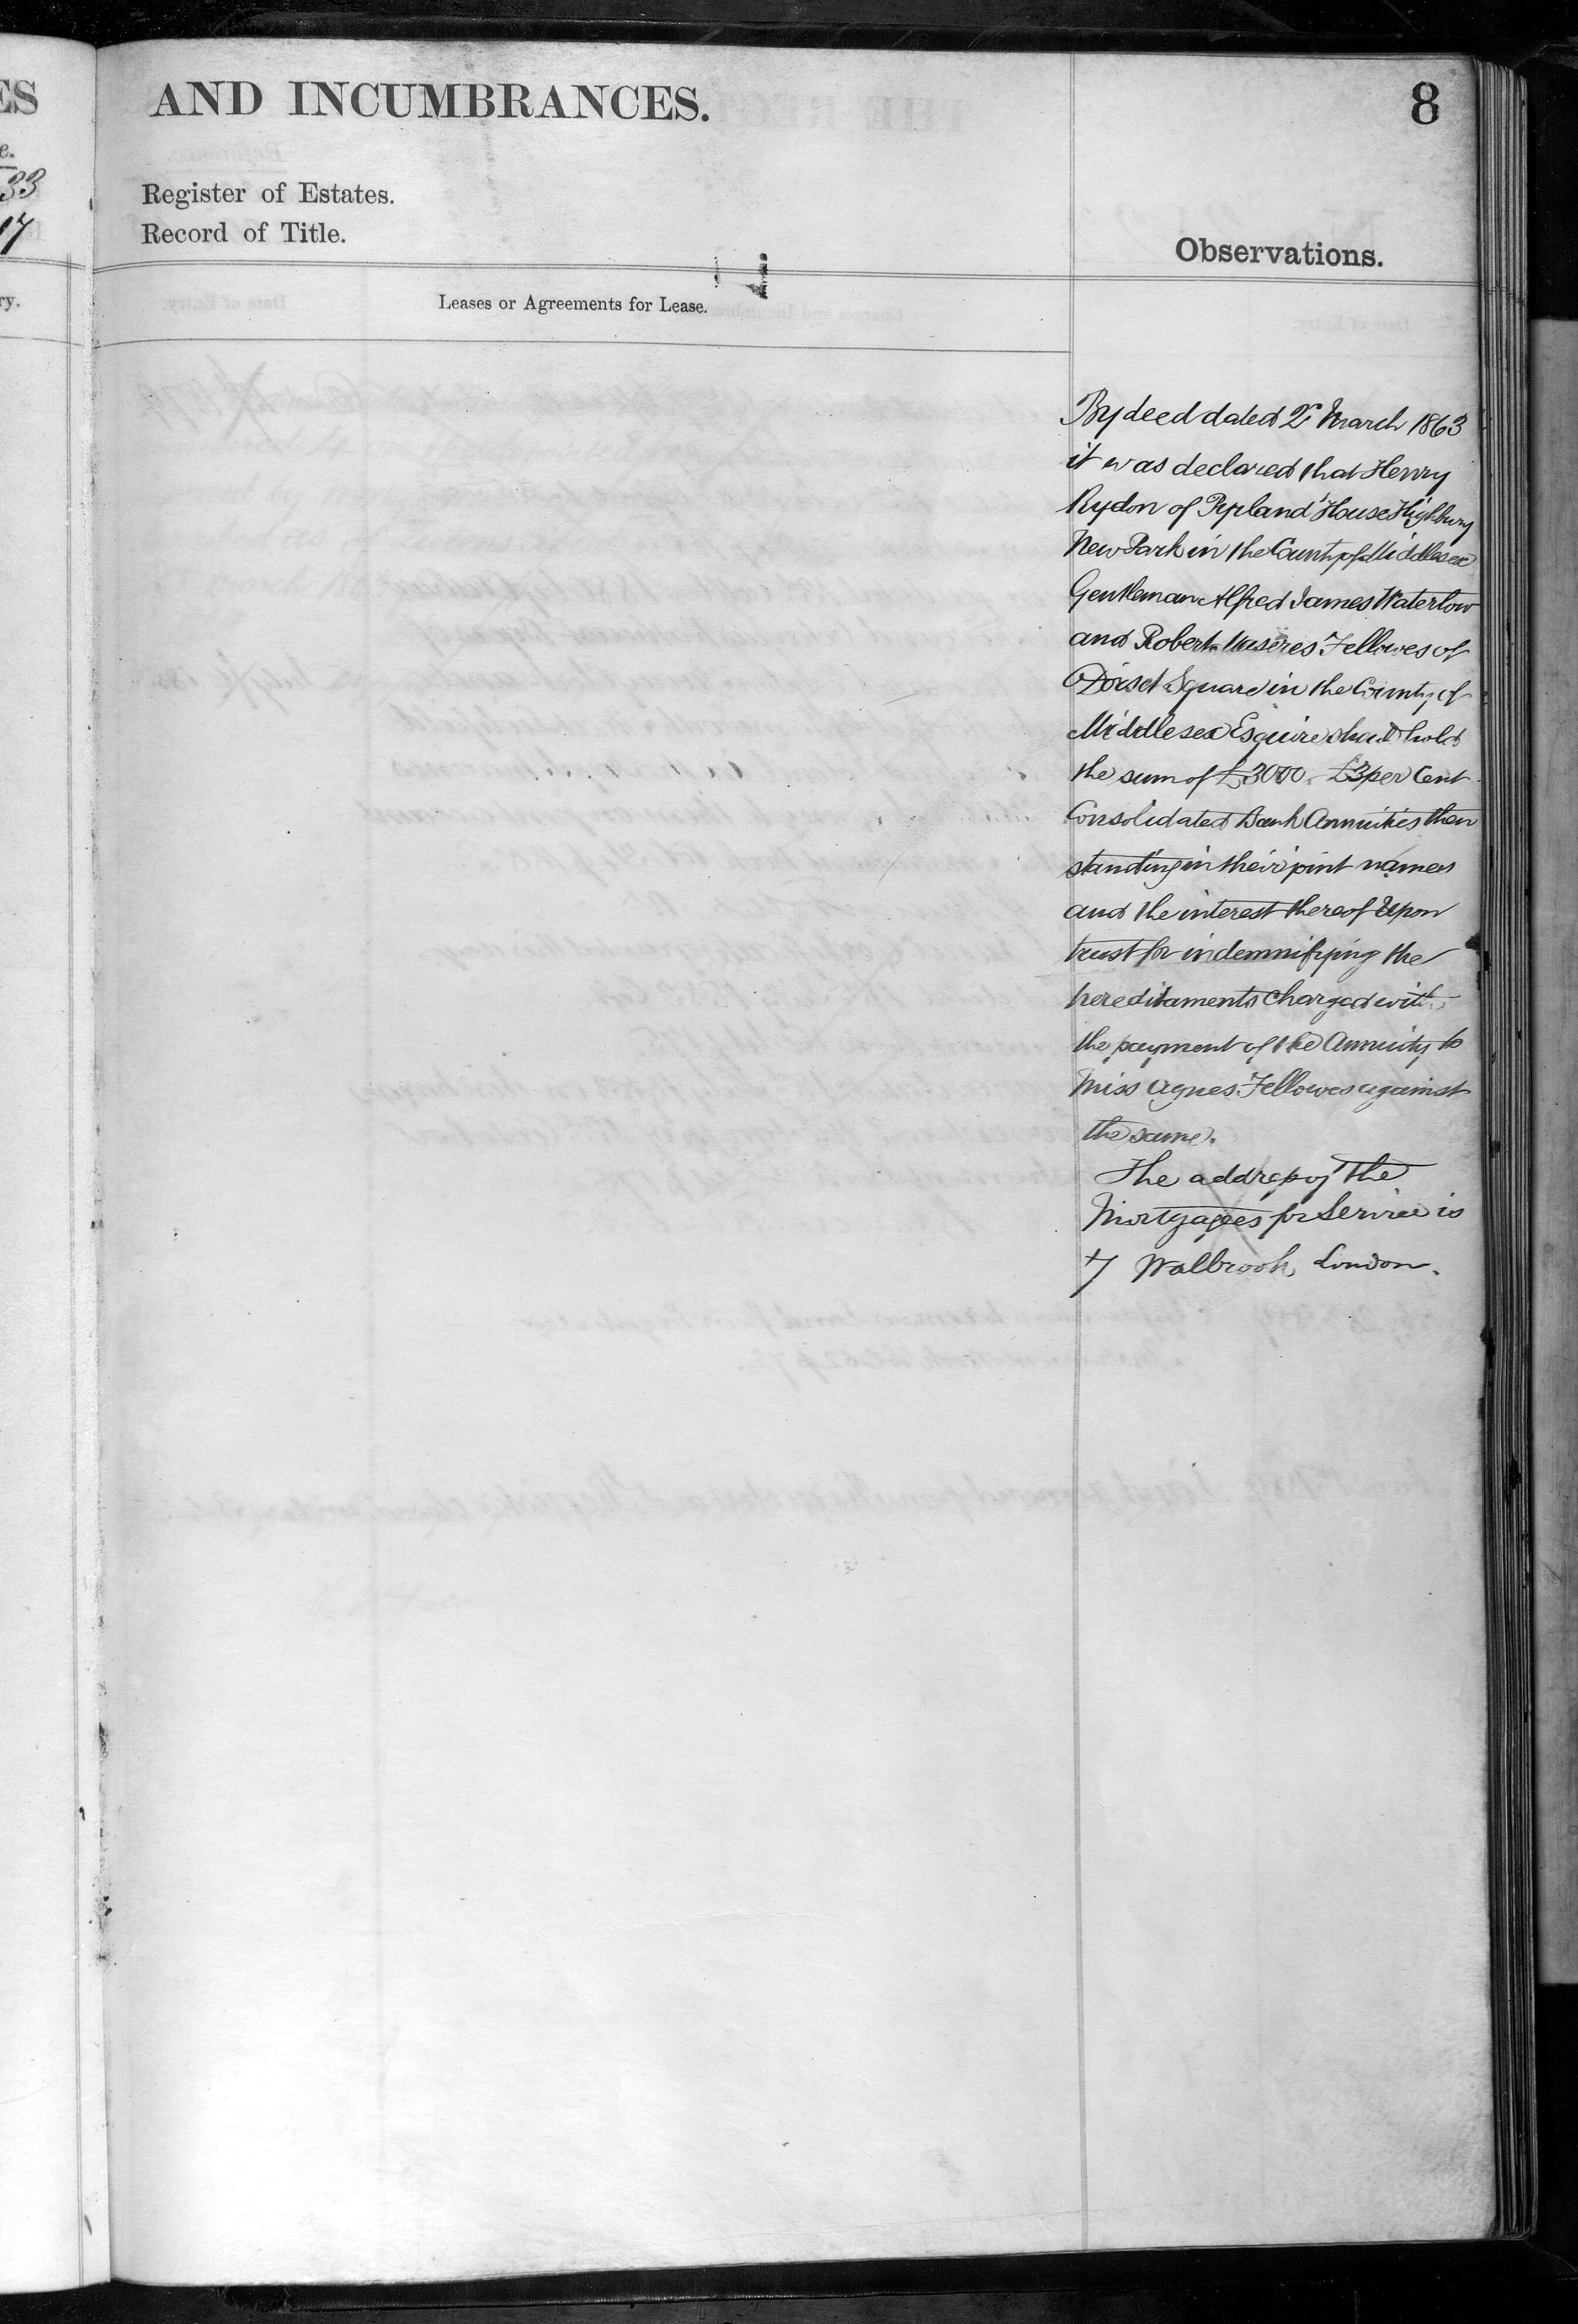 ES
AND INCUMBRANCES.
8
e.
33
17
Register of Estates.
Record of Title.
Observations.
ry.
Leases or Agreements for Lease.
By deed dated 2d March 1863
it was declared that Henry
Rydon of Pyrland House Highbury
New Park in the County of Middlesex
Gentleman Alfred James Waterlow
and Robert Maseres Fellowes of
Dorset Square in the County of
Middlesex Esquire should hold
the sum of £3000. £3 per Cent
Consolidated Bank Annuities then
standing in their joint names
and the interest thereof Upon
trust for indemnifying the
hereditaments charged with
the payment of the Annuity to
Miss Agnes Fellowes against
the same.
The address of the
Mortgagees for Service is
7 Walbrook London.